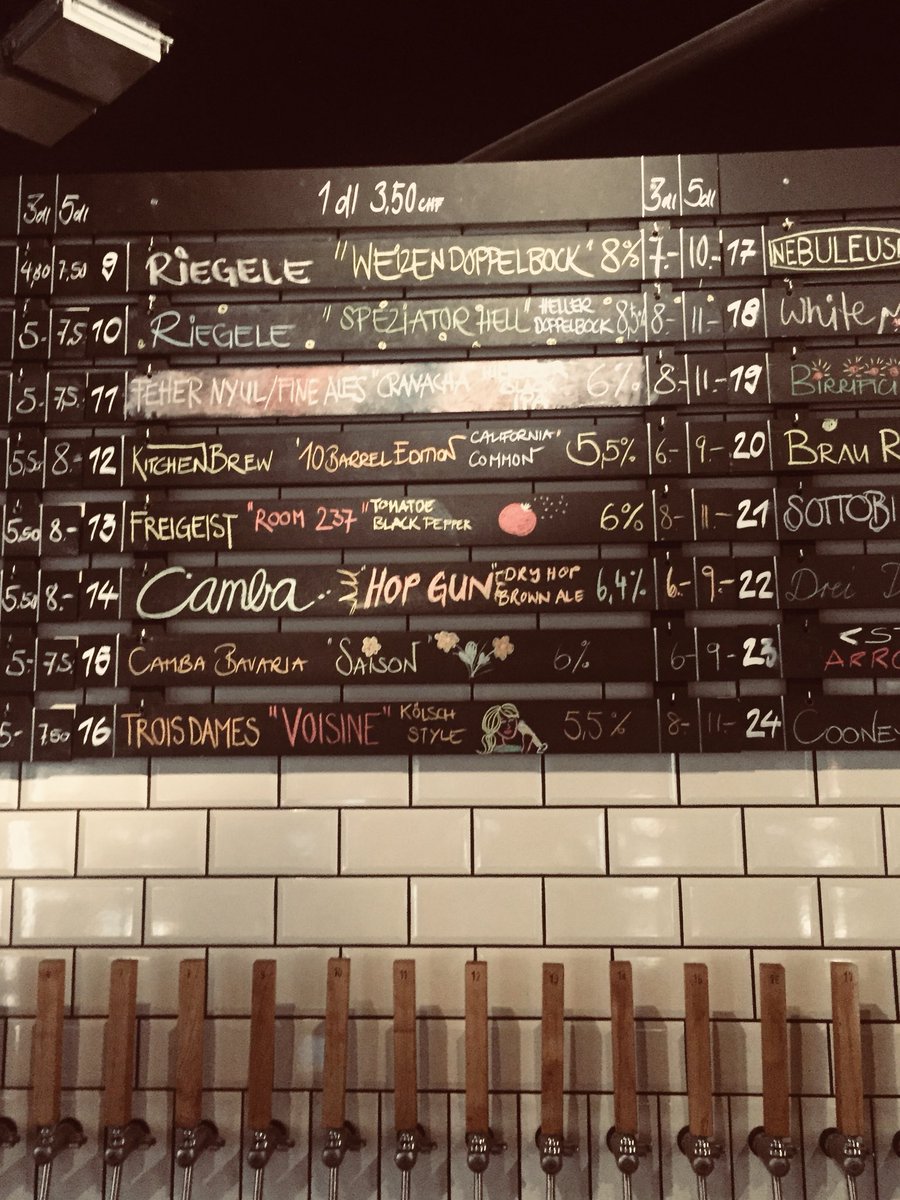 3dl 5dl 1 dl 3,50 CHF 3dl 5dl
4,80 7,50 9 RIEGELE "WEIZEN DOPPELBOCK" 8% 7.- 10.- 17 NEBULEUS
5.- 7.5 10 RIEGELE "SPEZIATOR HELL" HELLER DOPPELBOCK 8,5% 8.- 11.- 18 White
5.- 7.5 11 FEHER NYUL/FINE ALES "CRANACHA BLACK IPA 6% 8.- 11.- 19 BIRRIFICI
5,50 8.- 12 KITCHEN BREW "10 BARREL EDITION CALIFORNIA" COMMON 5,5% 6.- 9.- 20 BRAU R
5.50 8.- 13 FREIGEIST "ROOM 237" TOMATOE BLACK PEPPER 6% 8.- 11.- 21 SOTTOBI
5.50 8.- 14 Camba "HOP GUN" DRY HOP BROWN ALE 6,4% 6.- 9.- 22 Drei
5.- 7.5 15 CAMBA BAVARIA "SAISON" 6% 6.- 9.- 23 <ST ARRO
5.- 7.50 16 TROIS DAMES "VOISINE" KÖLSCH STYLE 5,5% 8.- 11.- 24 COONEY